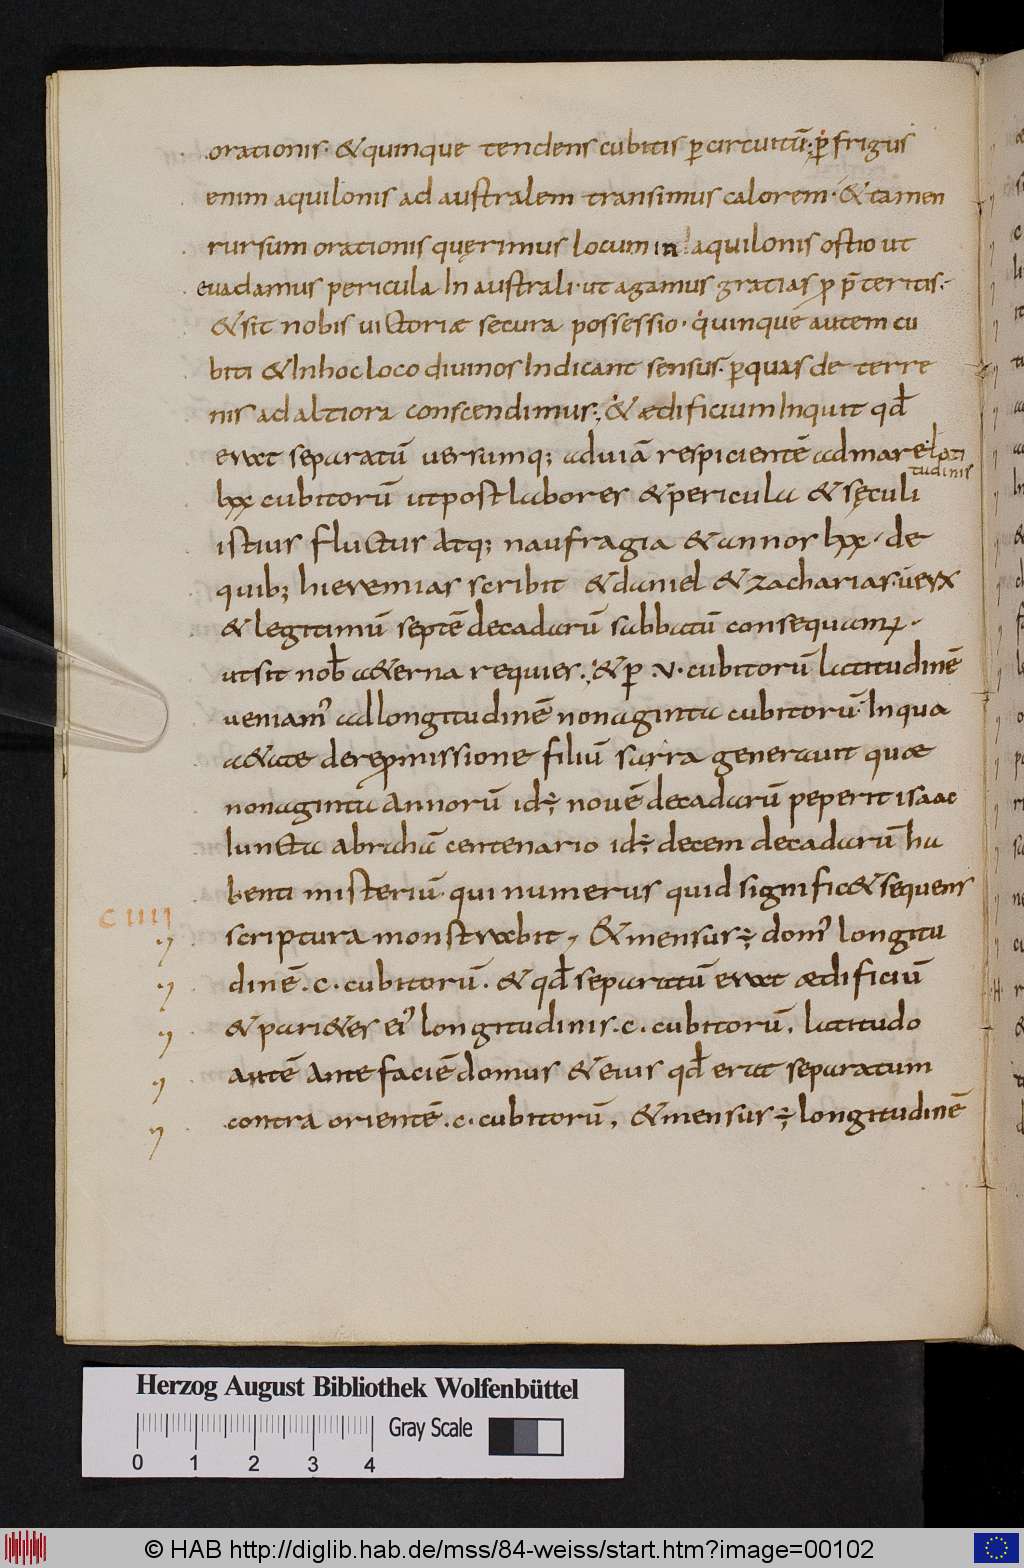 orationis· & quinque tendens cubitis p̱ circuitū· ṗ frigus
enim aquilonis ad australem transimus calorem· & tamen
rursum orationis quęrimus locum in aquilonis ostio ut
euadamus pericula In australi· ut agamus gratias ꝓ p̄teritis·
& sit nobis uictoriæ secura possessio· quinque autem cu
biti & Inhoc loco diuinos Indicant sensus· ꝑ quas de terre
nis ad altiora conscendimus; & ædificium Inquit qd̄
erat separatū uersumq; ad uiā respicientē ad mare lati
tudinis
lxx cubitorū ut post labores & pericula & sęculi
istius fluctus atq; naufragia & annos lxx· de
quib; hieremias scribit & daniel & zacharias· uera
& legitimū septē decadarū sabbatū consequam̄·
ut sit nob̄ a&erna requies·; & ꝑ ·v· cubitorū latitudinē
ueniam᾽ ad longitudinē nonaginta cubitorū· In qua
a&ate de repromissione filiū sarra generauit quæ
nonaginta annorū id ÷ nouē decadarū peperit isaac
Iuncta abrahā centenario id ÷ decem decadarū ha
benti misteriū· qui numerus quid signific& sequens
scriptura monstrabit, & mensus ÷ dom᾽ longitu
c iiii
dinē· c· cubitorū· & qd̄ separatū erat ædificiū
& pari&es ei᾽ longitudinis· c· cubitorū, latitudo
autē ante faciē domus & eius qd̄ erat separatum
contra orientē· c· cubitorū, & mensus ÷ longitudinē
Herzog August Bibliothek Wolfenbüttel
Gray Scale
0 1 2 3 4
© HAB http://diglib.hab.de/mss/84-weiss/start.htm?image=00102